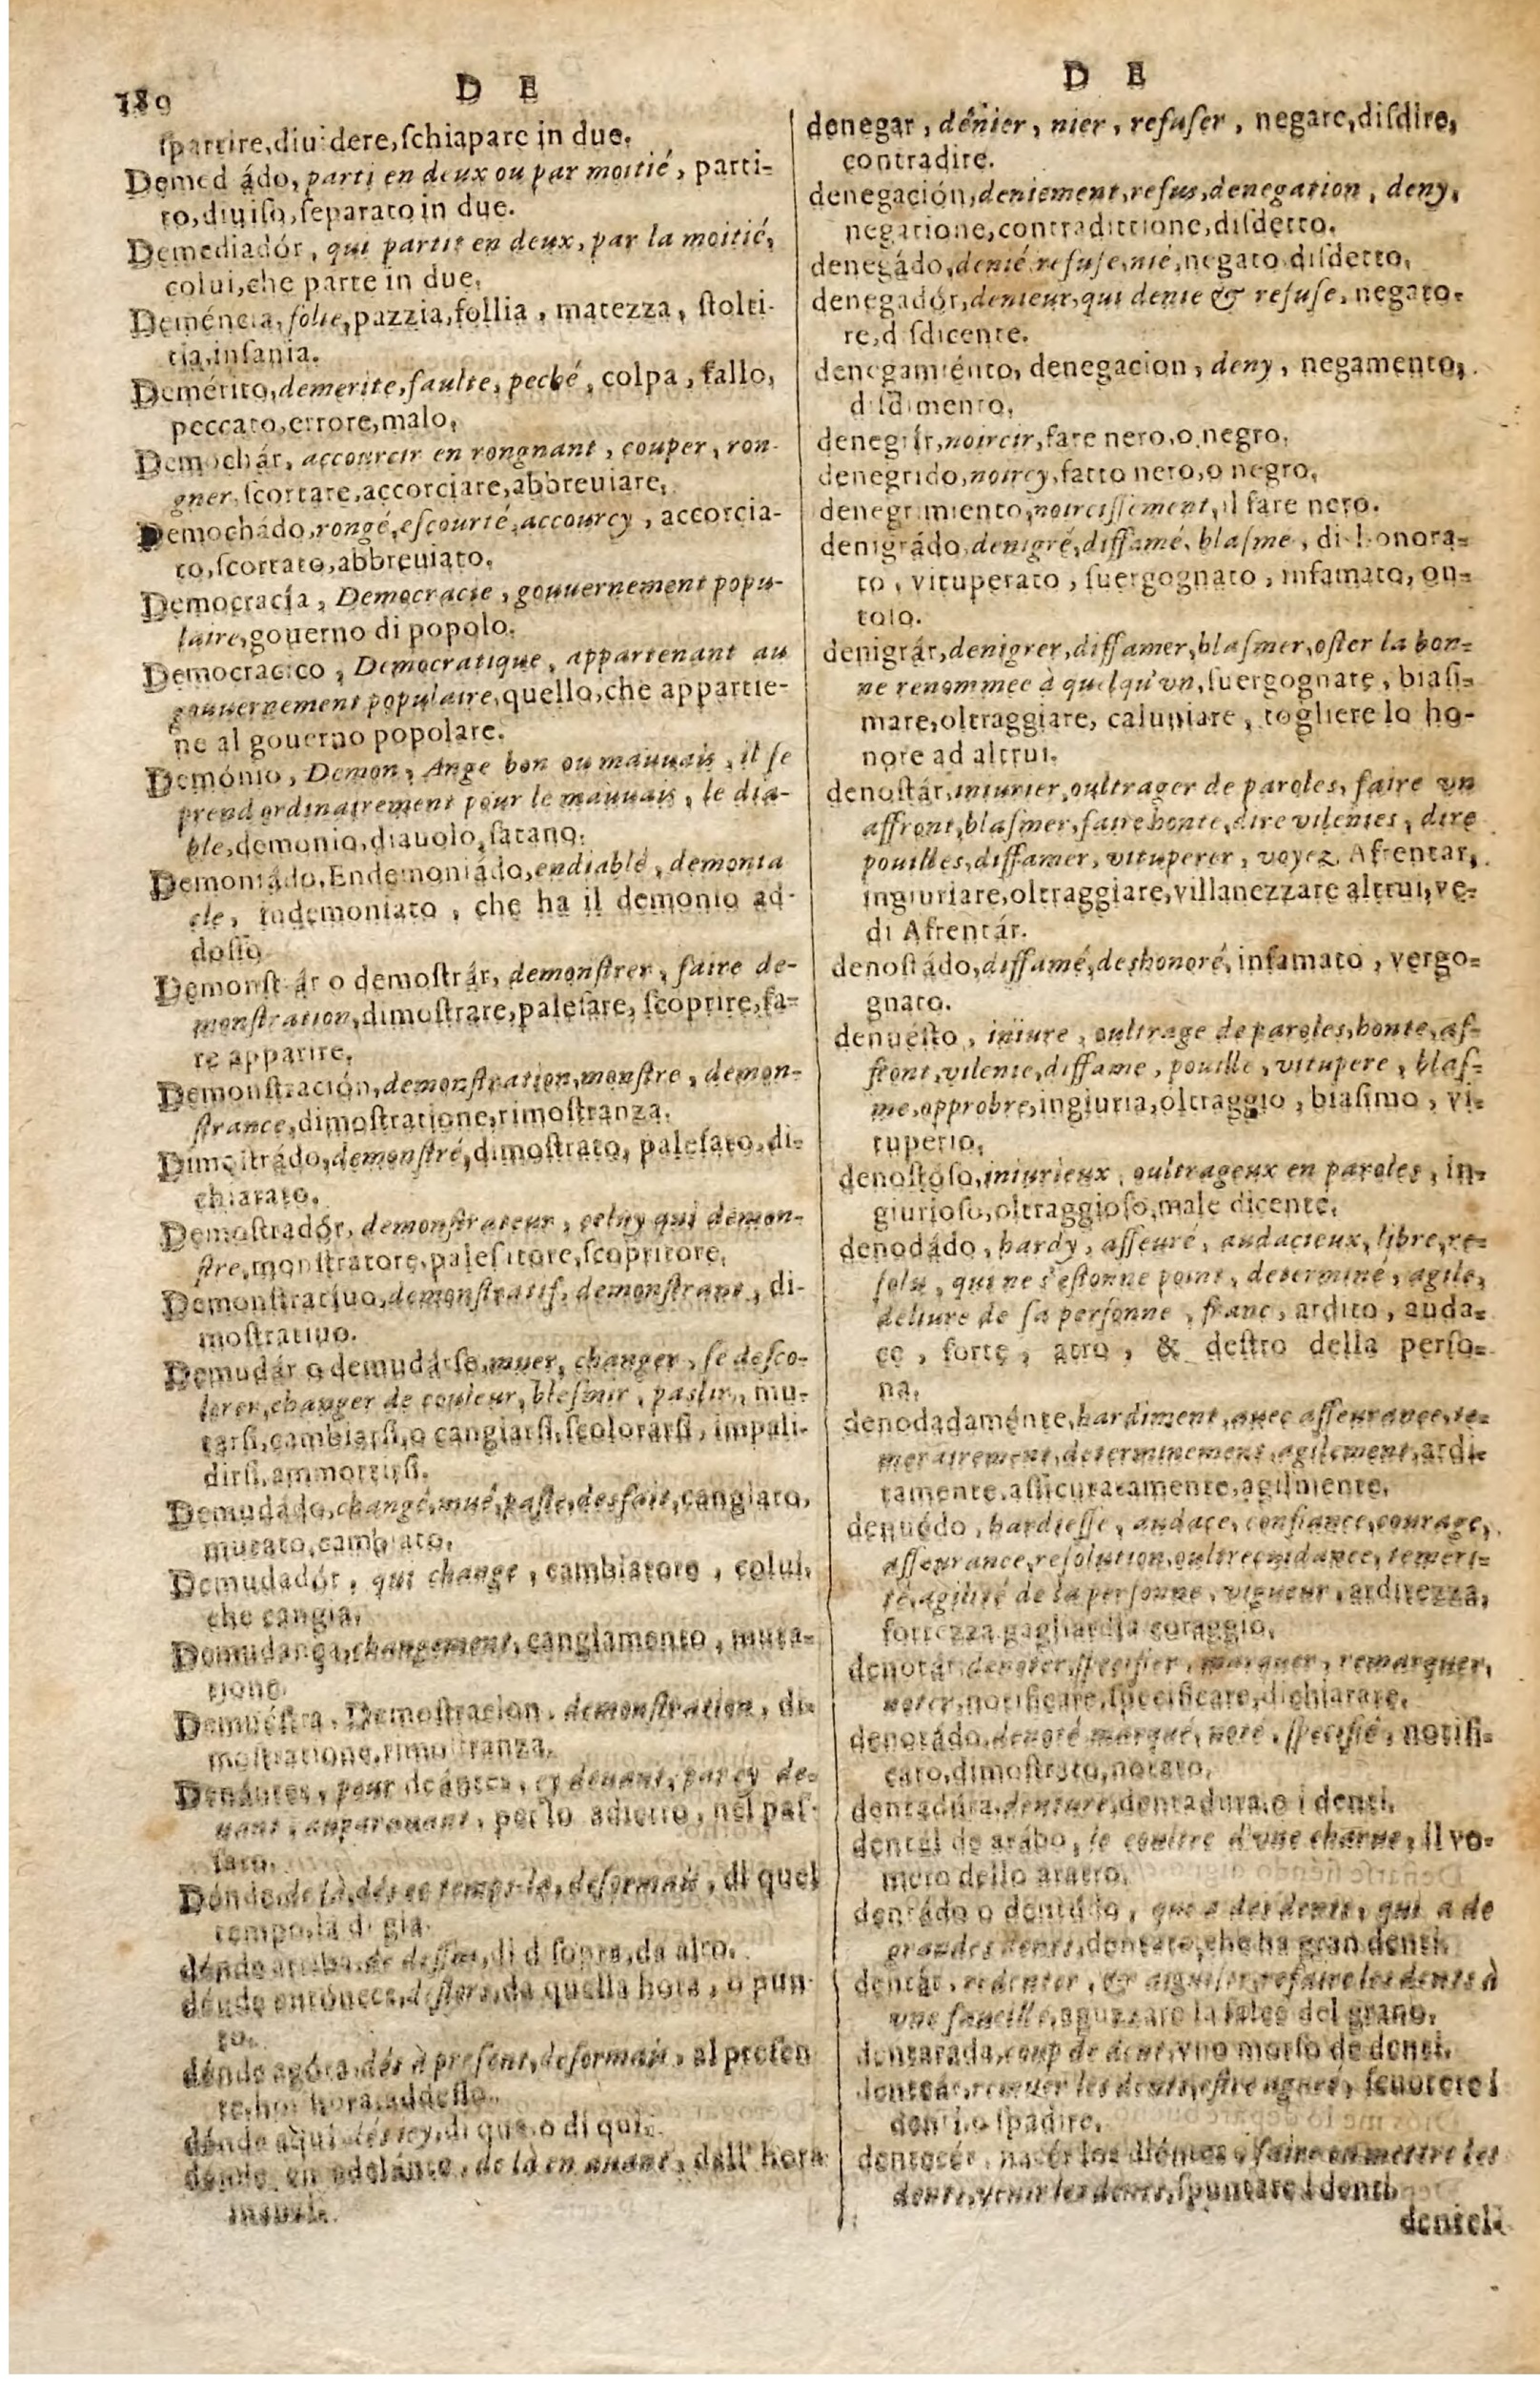 189
D E
ſpartire,diuidere,ſchiapare in due.
Demed ádo, parti en deux ou par moitié, parti-
to,diuiſo,ſeparato in due.
Demediadór, qui partit en deux, par la moitié,
colui,che parte in due.
Deméncia, folie,pazzia,follia, matezza, ſtolti-
tia,inſania.
Demérito,demerite,faulte, peché, colpa, fallo,
peccato,errore,malo.
Demochár, accourcir en rongnant, couper, ron-
gner,ſcortare,accorciare,abbreuiare.
Demochádo,rongé,eſcourté,accourcy, accorcia-
to,ſcortato,abbreuiato.
Democracía, Democracie, gouuernement popu-
laire,gouerno di popolo.
Democratico, Democratique, appartenant au
gouuernement populaire,quello,che appartie-
ne al gouerno popolare.
Demónio, Demon, Ange bon ou mauuais, il ſe
prend ordinairement pour le mauuais, le dia-
ble,demonio,diauolo,ſatano.
Demoniádo,Endemoniádo,endiablé, demonia
cle, indemoniato, che ha il demonio ad-
doſſo
Demonſtrár o demoſtrár, demonſtrer, faire de-
monſtration,dimoſtrare,paleſare, ſcoprire,fa-
re apparire.
Demonſtración,demonſtration,monſtre, demon-
ſtrance,dimoſtratione,rimoſtranza.
Dimoſtrádo,demonſtré,dimoſtrato, paleſato,di-
chiarato.
Demoſtradór, demonſtrateur, celuy qui démon-
ſtre,monſtratore,paleſatore,ſcopritore.
Demonſtratiuo,demonſtratif, demonſtrant, di-
moſtratiuo.
Demudár o demudárſe,muer, changer, ſe deſco-
lorer,changer de couleur,bleſmir, paslir, mu-
tarſi,cambiarſi,o cangiarſi,ſcolorarſi, impali-
dirſi,ammortirſi.
Demudádo,changé,mué,paſle,desfait,cangiato,
mutato,cambiato.
Demudadór, qui change, cambiatore, colui,
che cangia.
Demudança,changement,cangiamento, muta-
tione.
Demuéſtra, Demoſtracion, demonſtration, di-
moſtratione,rimoſtranza.
Denántes, pour deántes, cy deuant, par cy de-
uant, auparauant, per lo adietro, nel paſ-
ſato.
Dénde,de là,dés ce temps-là, deſormais, di quel
tempo,la di gia.
dénde arriba,de deſſus,di d ſopra,da alto.
dénde entónces,deſlors,da quella hora, o pun-
to.
dénde agóra,dés à preſent,deſormais, al preſen
te,hoi hora,addeſſo.
dénde aqui dés icy,di qua,o di qui.
dende en adelánte, de là en auant, dall' hora
D E
denegar, dénier, nier, refuſer, negare,diſdire,
contradire.
denegación,deniement,refus,denegation, deny,
negatione,contradittione,diſdetto.
denegádo,denié,refuſe,nié,negato diſdetto,
denegadór,denieur,qui denie & refuſe, negato-
re,d ſdicente.
denegamiénto, denegacion, deny, negamento,
diſdimento.
denegrír,noircir,fare nero,o negro.
denegrido,noircy,fatto nero,o negro,
denegrimiento,noirciſſement,il fare nero.
denigrádo,denigré,diffamé,blaſme, diſhonora-
to, vituperato, ſuergognato, infamato, on-
toſo.
denigrár,denigrer,diffamer,blaſmer,oſter la bon-
ne renommee à quelqu'vn,ſuergognare, biaſi-
mare,oltraggiare, caluniare, togliere lo ho-
nore ad altrui.
denoſtár,iniurier,oultrager de paroles, faire vn
affront,blaſmer,faire honte,dire vilenies, dire
pouilles,diffamer, vituperer, voyez Afrentar,
ingiuriare,oltraggiare,villanezzare altrui,ve-
di Afrentár.
denoſtádo,diffamé,deshonoré,infamato, vergo-
gnato.
denuéſto, iniure, oultrage de paroles,honte,af-
front,vilenie,diffame, pouille, vitupere, blaſ-
me,opprobre,ingiuria,oltraggio, biaſimo, vi-
tuperio.
denoſtóſo,iniurieux, oultrageux en paroles, in-
giurioſo,oltraggioſo,male dicente.
denodádo, hardy, aſſeuré, audacieux,libre,re-
ſolu, qui ne s'eſtonne point, determiné, agile,
deliure de ſa perſonne, franc, ardito, auda-
ce, forte, atro, & deſtro della perſo-
na.
denodadaménte,hardiment,auec aſſeurance,te-
merairement,determinement,agilement,ardi-
tamente,aſſicuratamente,agilmente.
denuédo, hardieſſe, audace,confiance,courage,
aſſeurance,reſolution,oultrecuidance, temeri-
té,agilité de la perſonne, vigueur, arditezza,
fortezza gagliardia coraggio.
denotár,denoter,ſpecifier, marquer, remarquer,
noter,notificare,ſpecificare,dichiarare.
denotádo,denoté marqué,noté, ſpecifié, notifi-
cato,dimoſtrato,notato.
dentadúra,denture,dentadura,o i denti.
dentál de arádo, le coultre d'vne charue, il vo-
mero dello aratro.
dentádo o dentúdo, qui a des dents, qui a de
grandes dents,dentato,che ha gran denti.
dentár, redenter, & aiguiſer,refaire les dents à
vne faucille,aguzzare la falce del grano.
dentarada,coup de dent,vno morſo de denti.
denti,o ſpadire.
dentecér, nacér los diéntes, faire ou mettre les
dents,venir les dents,ſpuntare i denti.